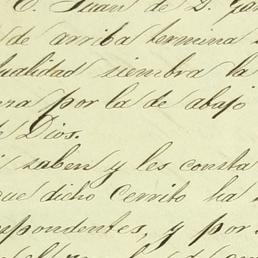 C. Juan de D. Gar
de arriba termina
tualidad siembra la
ra por la de abajo
Dios.
saben y les consta
que dicho Cerrito ha
spondentes, y por